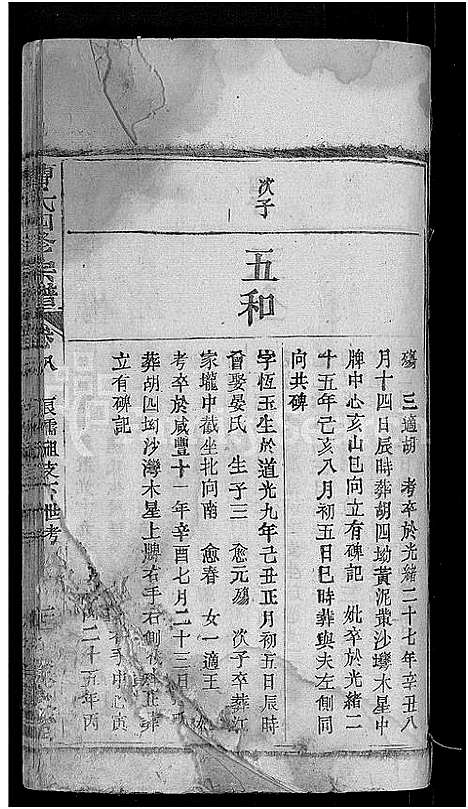 殤 三適胡 考卒於光緒二十七年辛丑八
月十四日辰時葬胡四坳黃泥壠沙灣木星中
脾中心亥山巳向立有碑記 妣卒於光緒二
十五年己亥八月初五日巳時葬與夫左側同
向共碑
次子
五和
字恆玉生於道光九年己丑正月初五日辰時
曾娶晏氏 生子三 愈元殤 次子卒葬江
家壠中截坐北向南 愈春 女一適王
考卒於咸豐十一年辛酉七月二十三日
葬胡四坳沙灣木星上脾右手右側
右手中心寅
立有碑記
二十五年丙
曹氏四修宗譜
卷八
世考